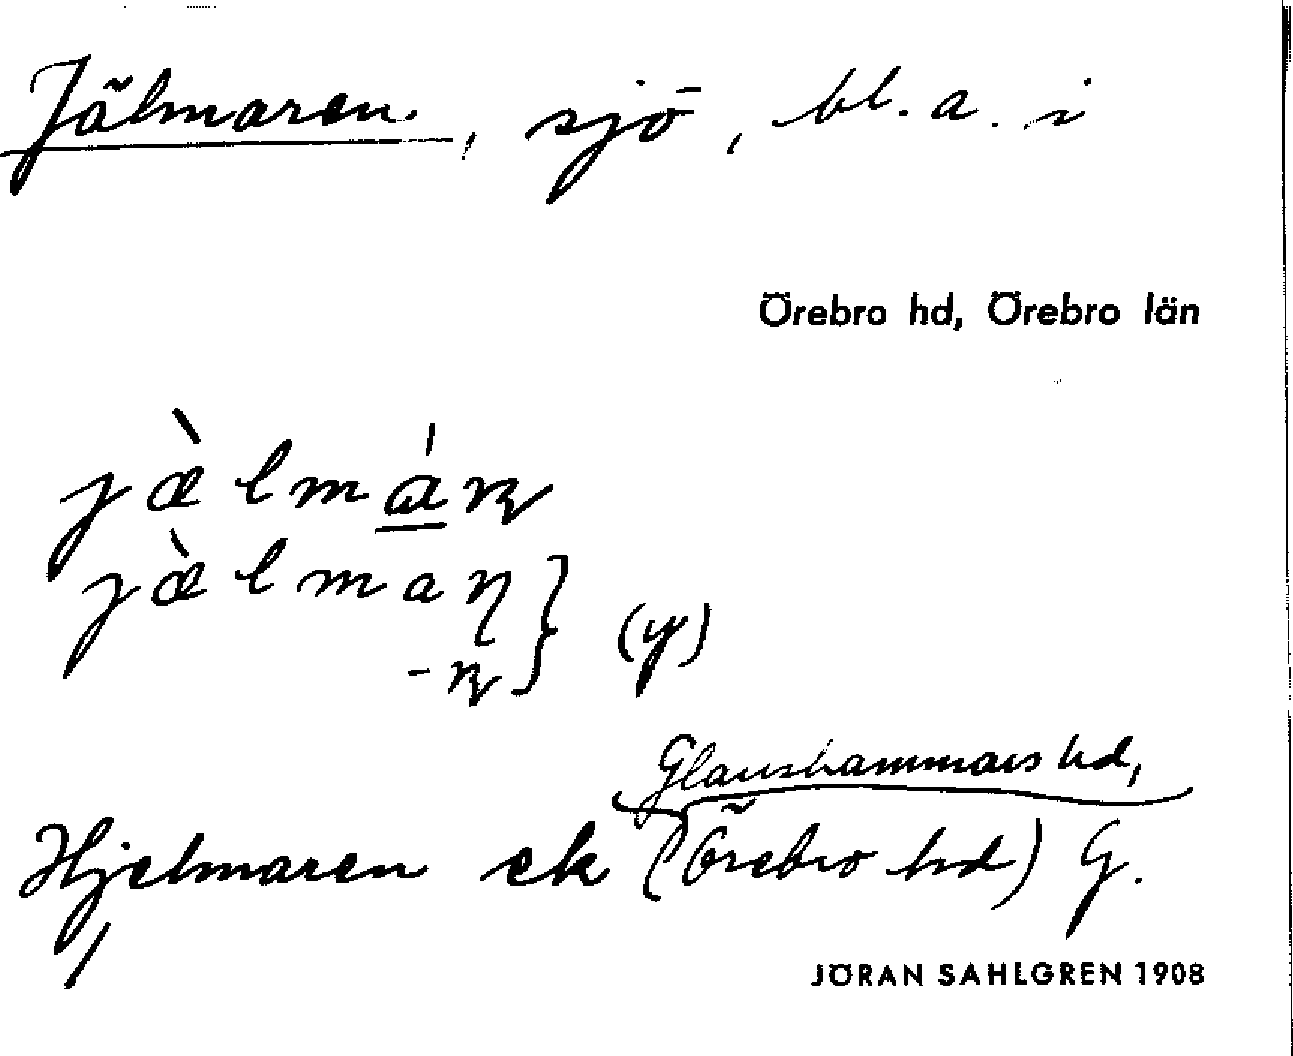 Jälmaren, sjö, bl. a. i
Örebro hd, Örebro län
jæ̀lmáꞃ
jæ̀lmaη
-ꞃ } (y)
Glanshammars hd,
Hjelmaren ek (Örebro hd) G.
JÖRAN SAHLGREN 1908